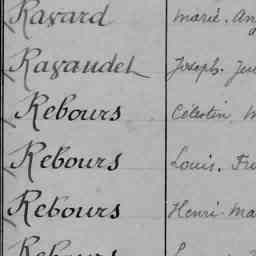 Ravard Marie. An
Ravaudet Joseph.
Rebours Célestin M
Rebours Louis. Fr
Rebours Henri Ma
Rebours